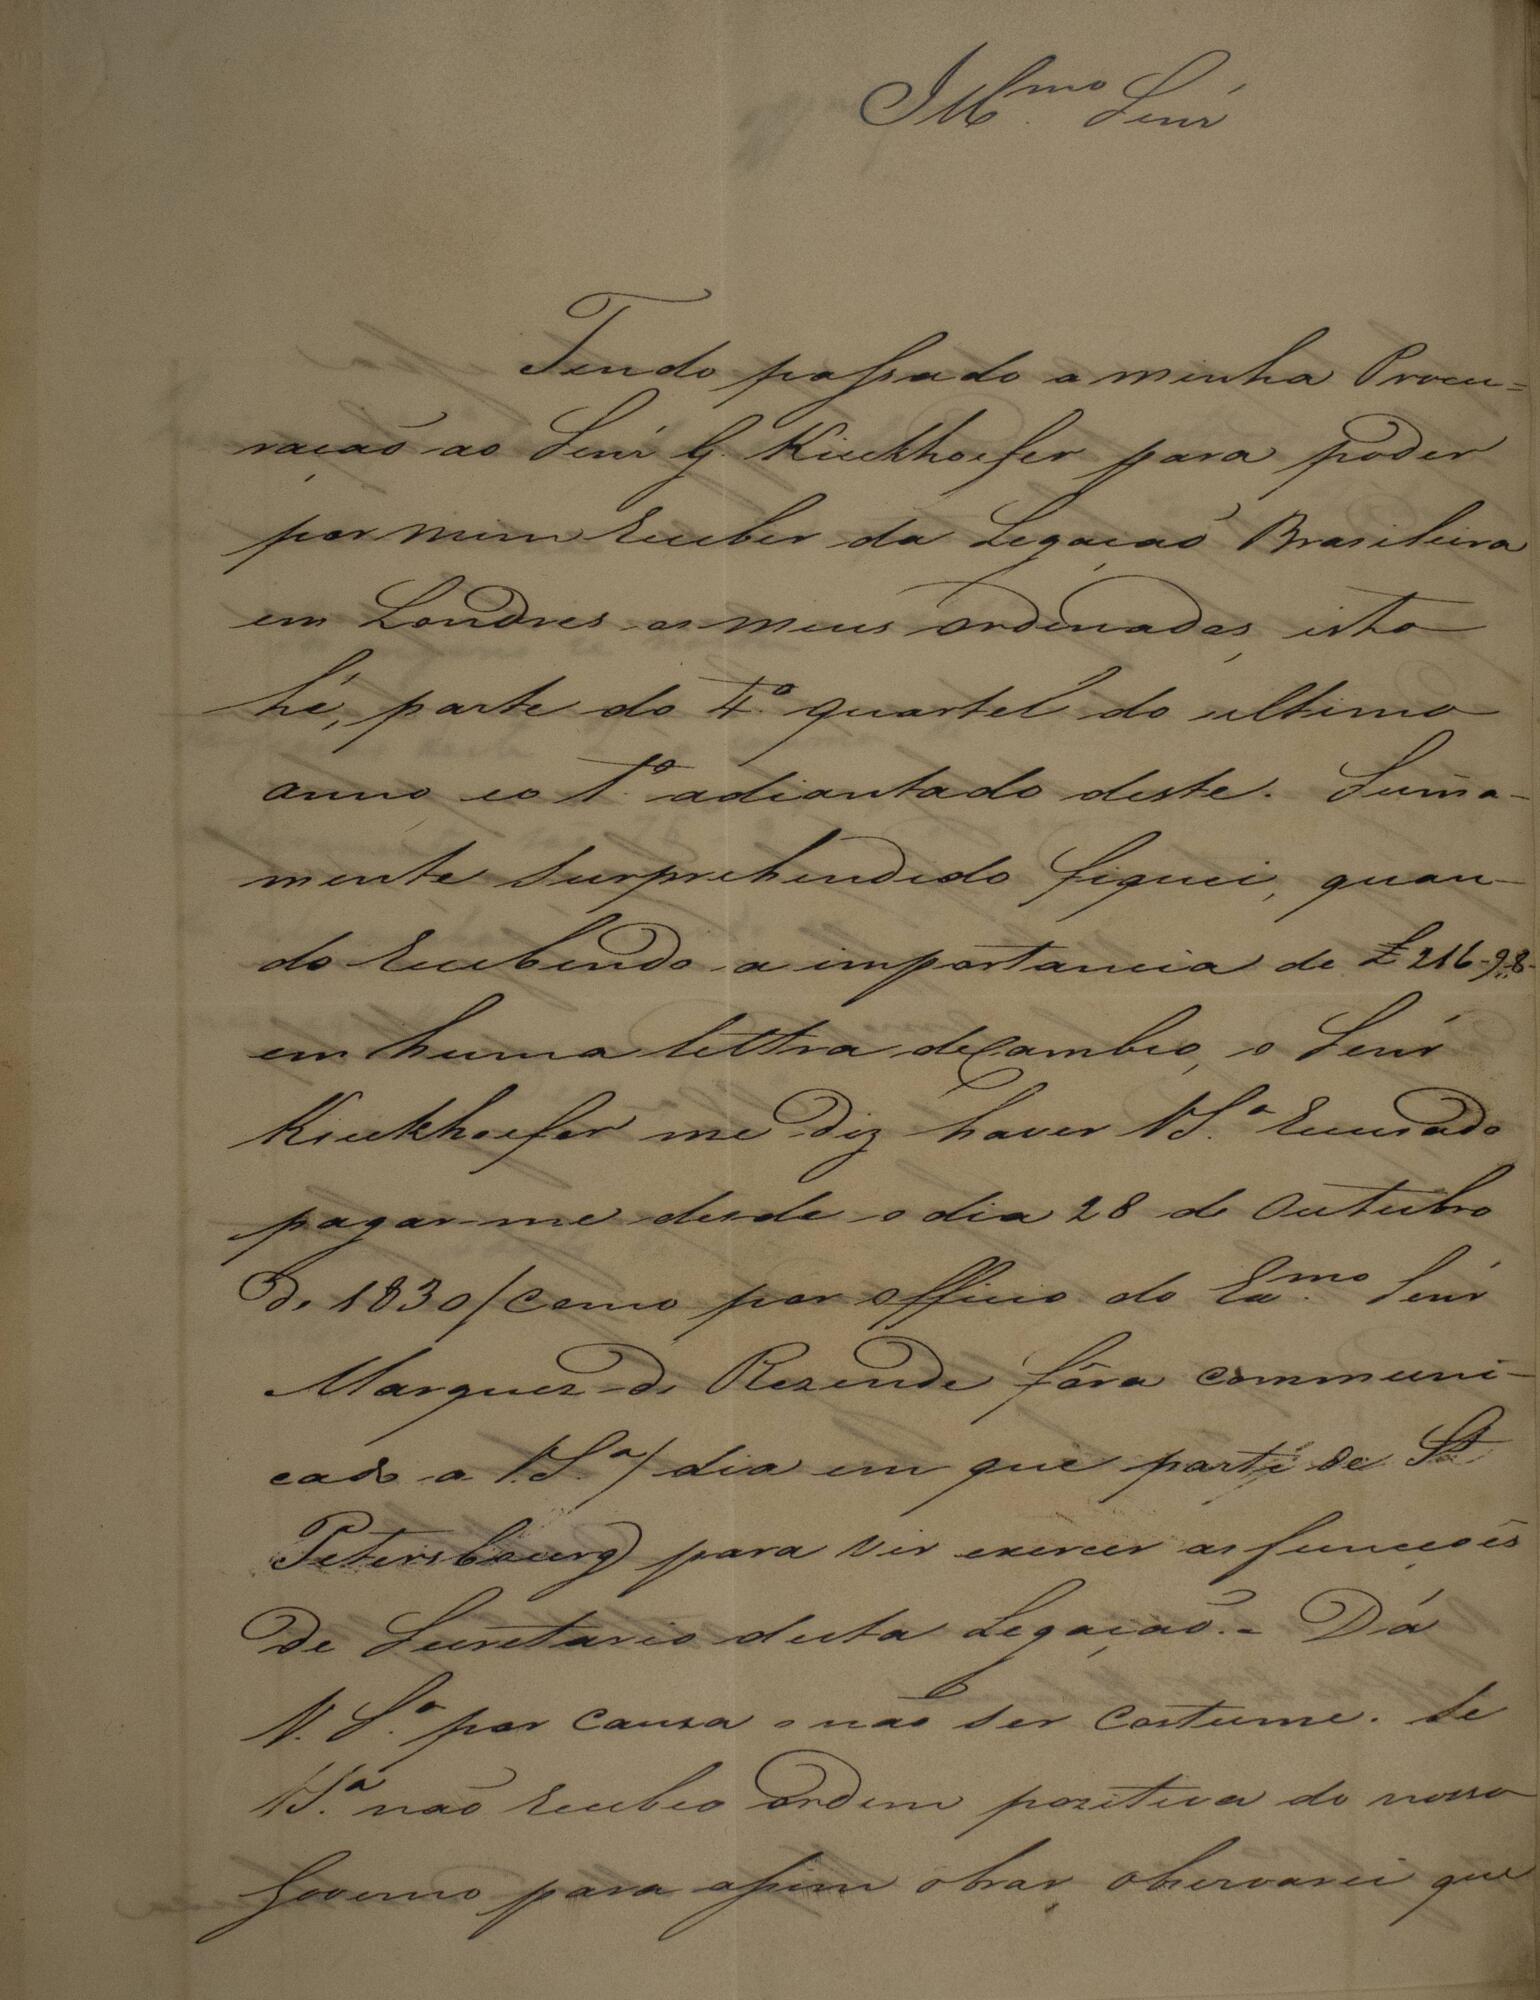 Ill.mo Senr
Tendo passado a minha Procu=
ração ao Senr G. Kieckhoefer para poder
por mim receber da Legação Brasileira
em Londres os meus ordenados, isto
hé, parte do 4.º quartel do ultimo
anno, eo 1.º adiantado deste. Suma-
mente surprehendido fiquei, quan-
do recebendo a importancia de £ 216-9.8-
em huma lettra de Cambio, o Senr
Kieckhoefer me diz haver V.S.ª recusado
pagar-me desde o dia 28 de Outubro
de 1830/como por officio do Ex.mo Senr
Marquez de Rezende fôra communi-
cado a V.S.ª/ dia em que parti de St
Petersbourg para vir exercer as funcções
de Secretario desta Legação.= Dá
V. S.ª por causa o não ser costume. Se
V.S.ª não recebeo ordem pozitiva do nosso
Governo para assim obrar, observarei que